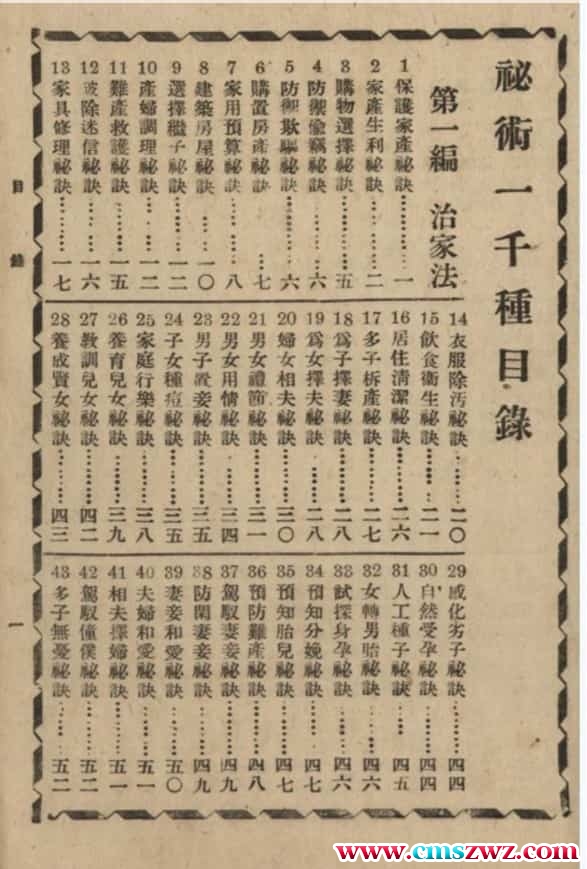 祕術一千種目錄
第一編 治家法
1 保護家產祕訣…………一
2 家產生利祕訣…………二
3 購物選擇祕訣…………五
4 防禦偷竊祕訣…………六
5 防禦欺騙祕訣…………六
6 購置房產祕訣…………七
7 家用預算祕訣…………八
8 建築房屋祕訣…………一〇
9 選擇繼子祕訣…………一二
10 產婦調理祕訣…………一二
11 難產救護祕訣…………一五
12 破除迷信祕訣…………一六
13 家具修理祕訣…………一七
14 衣服除污祕訣…………二〇
15 飲食衞生祕訣…………二一
16 居住清潔祕訣…………二六
17 多子析產祕訣…………二七
18 爲子擇妻祕訣…………二八
19 爲女擇夫祕訣…………二八
20 婦女相夫祕訣…………三〇
21 男女禮節祕訣…………三一
22 男女用情祕訣…………三四
23 男子置妾祕訣…………三五
24 子女種痘祕訣…………三五
25 家庭行樂祕訣…………三八
26 養育兒女祕訣…………三九
27 教訓兒女祕訣…………四二
28 養成賢女祕訣…………四三
29 感化劣子祕訣…………四四
30 自然受孕祕訣…………四四
31 人工種子祕訣…………四五
32 女轉男胎祕訣…………四六
33 試探身孕祕訣…………四六
34 預知分娩祕訣…………四七
35 預知胎兒祕訣…………四七
36 預防難產祕訣…………四八
37 駕馭妻妾祕訣…………四九
38 防閑妻妾祕訣…………四九
39 妻妾和愛祕訣…………五〇
40 夫婦和愛祕訣…………五一
41 相夫擇婦祕訣…………五一
42 駕馭僮僕祕訣…………五二
43 多子無憂祕訣…………五二
目錄
一
www.cmszwz.com